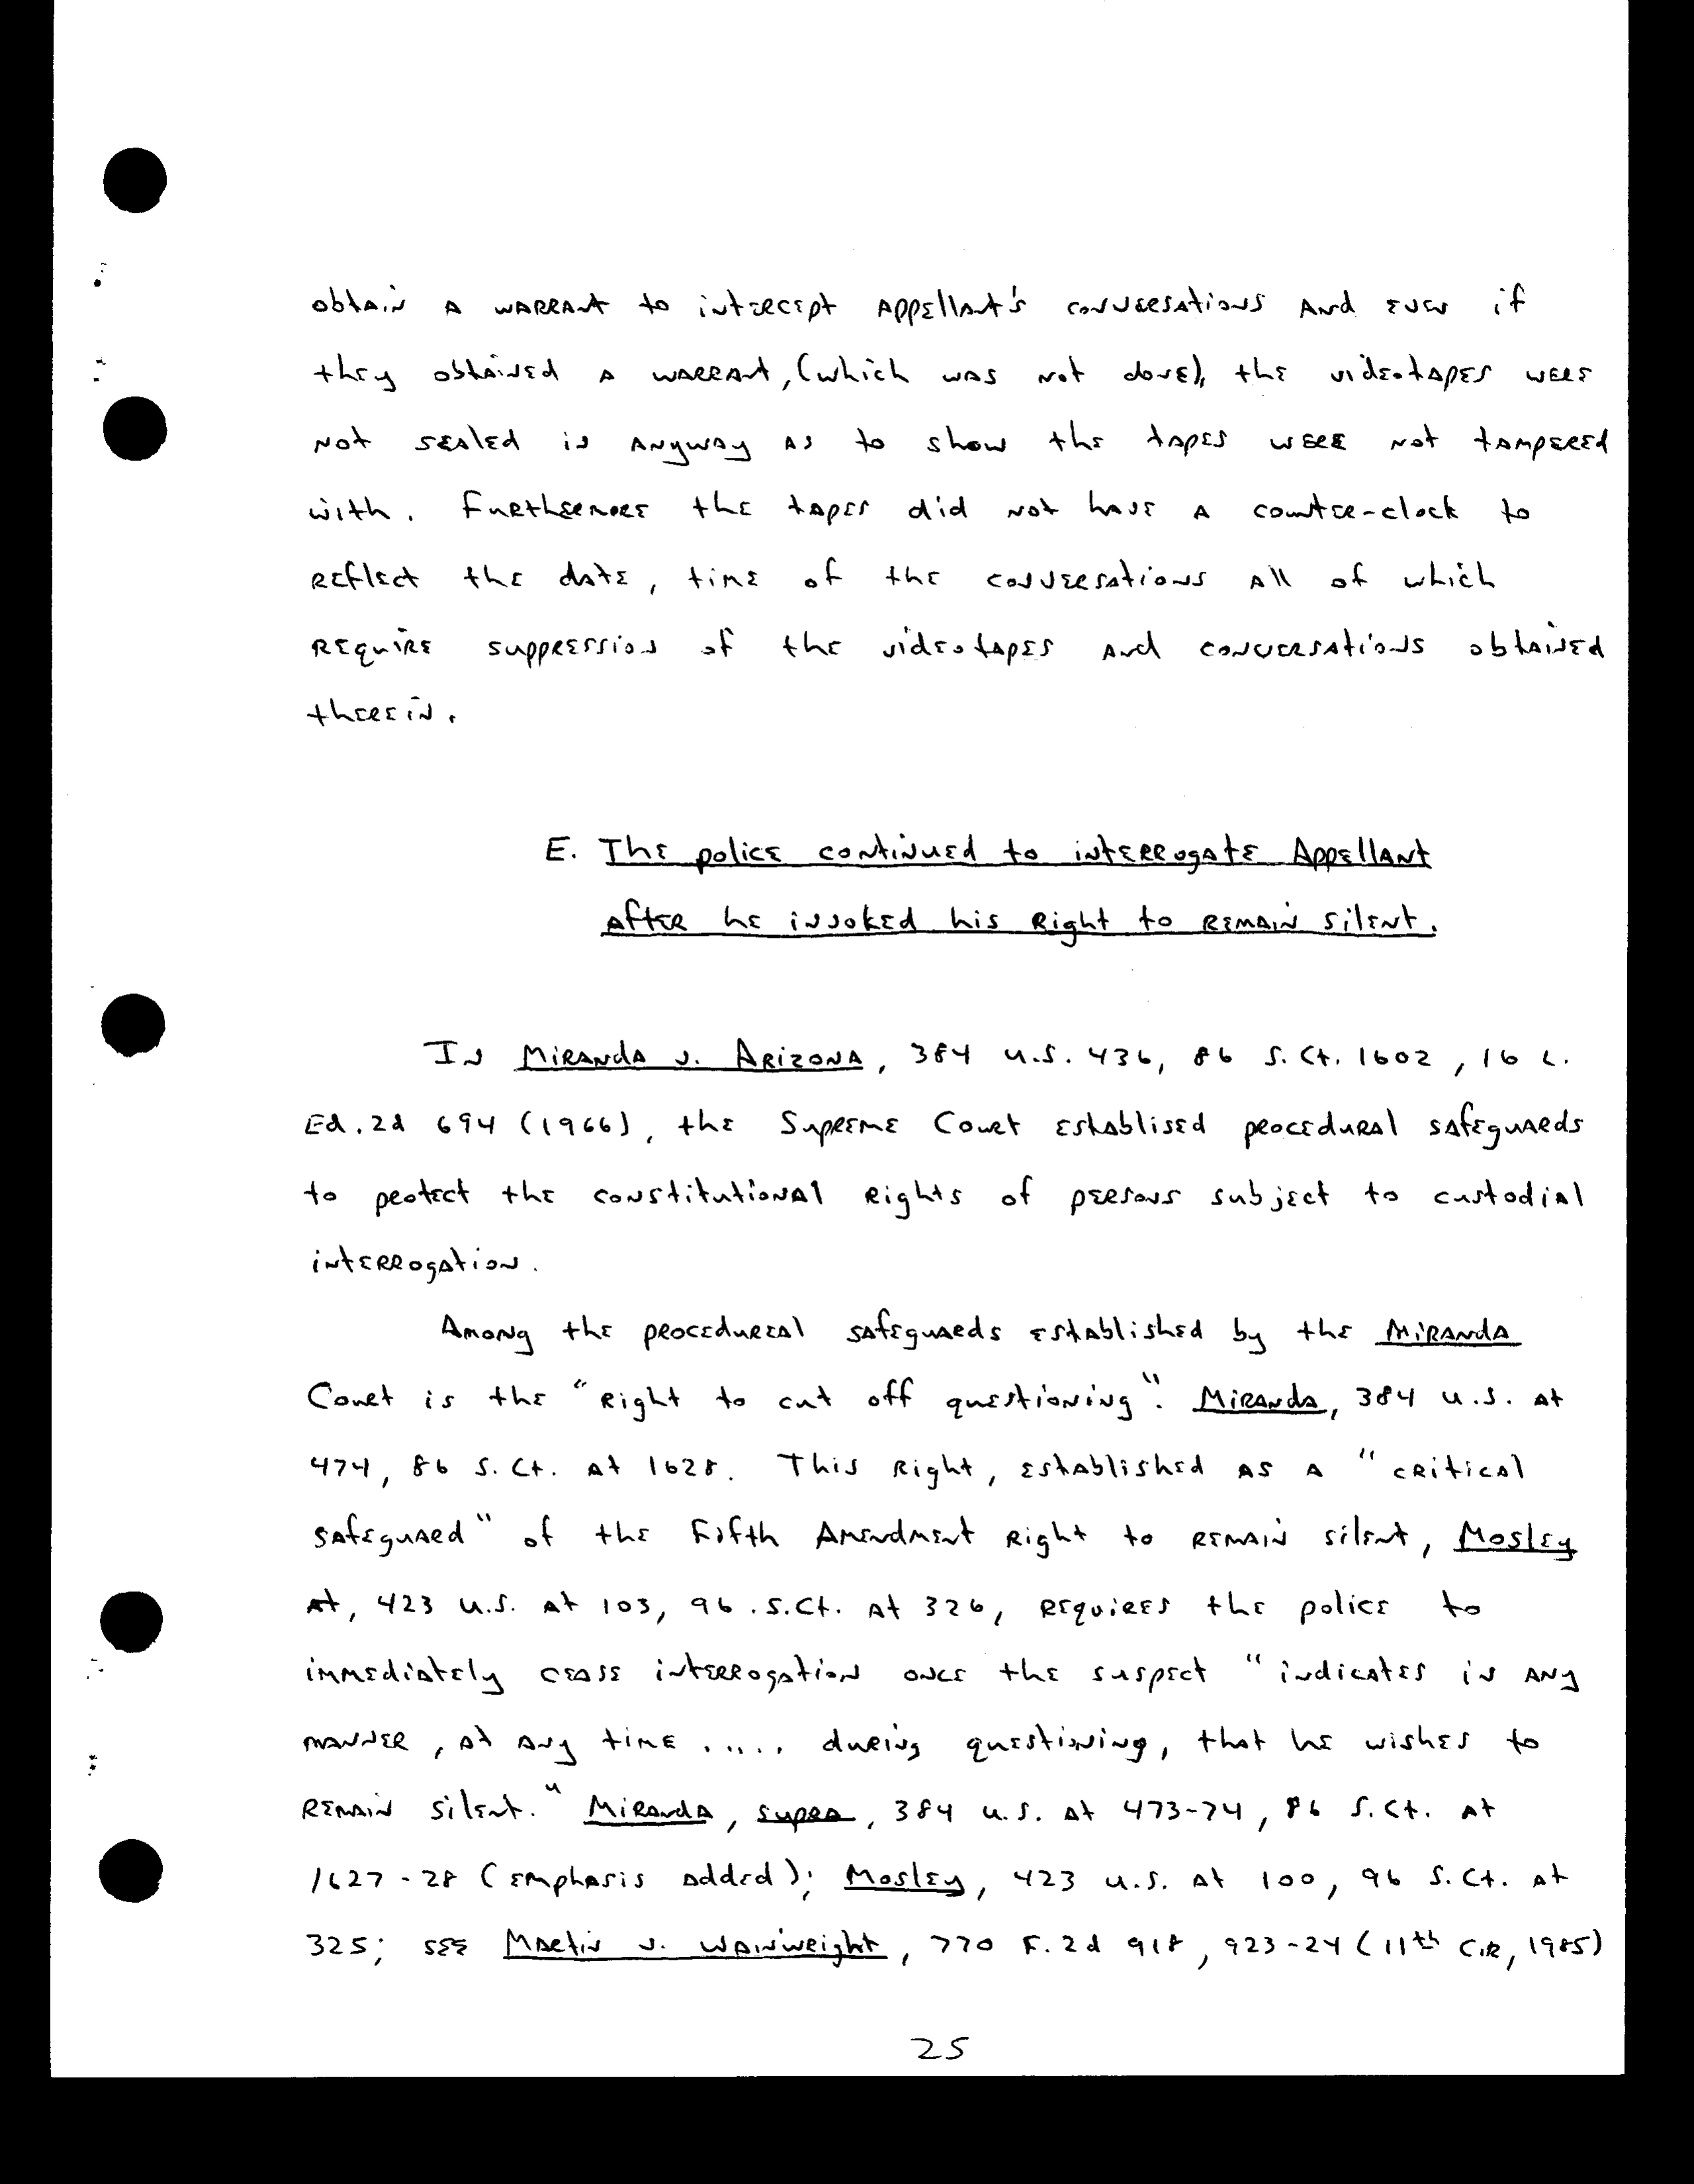 obtain a warrant to intercept Appellant's conversations and even if
they obtained a warrant, (which was not done), the videotapes were
not sealed in anyway as to show the tapes were not tampered
with. Furthermore the tapes did not have a counter-clock to
reflect the date, time of the conversations all of which
require suppression of the videotapes and conversations obtained
therein.
E. The police continued to interrogate Appellant
after he invoked his right to remain silent.
In Miranda v. Arizona, 384 U.S. 436, 86 S. Ct. 1602, 16 L.
Ed. 2d 694 (1966), the Supreme Court establised procedural safeguards
to protect the constitutional rights of persons subject to custodial
interrogation.
Among the procedureal safeguards established by the Miranda
Court is the "right to cut off questioning". Miranda, 384 U.S. at
474, 86 S. Ct. at 1628. This right, established as a "critical
safeguard" of the Fifth Amendment right to remain silent, Mosley
at, 423 U.S. at 103, 96 . S.Ct. at 326, requires the police to
immediately cease interrogation once the suspect "indicates in any
manner, at any time ..... during questioning, that he wishes to
remain silent." Miranda, supra, 384 U.S. at 473-74, 86 S. Ct. at
1627-28 (emphasis added); Mosley, 423 U.S. at 100, 96 S. Ct. at
325; see Martin v. Wainwright, 770 F. 2d 918, 923-24 (11th Cir, 1985)
25